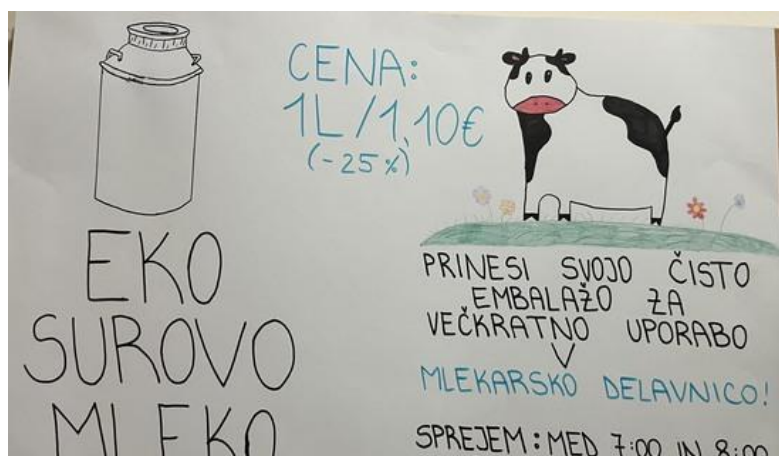 CENA:
1L/1,10€
(-25%)
EKO
SUROVO
MLEKO
PRINESI SVOJO ČISTO
EMBALAŽO ZA
VEČKRATNO UPORABO
V
MLEKARSKO DELAVNICO!
SPREJEM: MED 7:00 IN 8:00